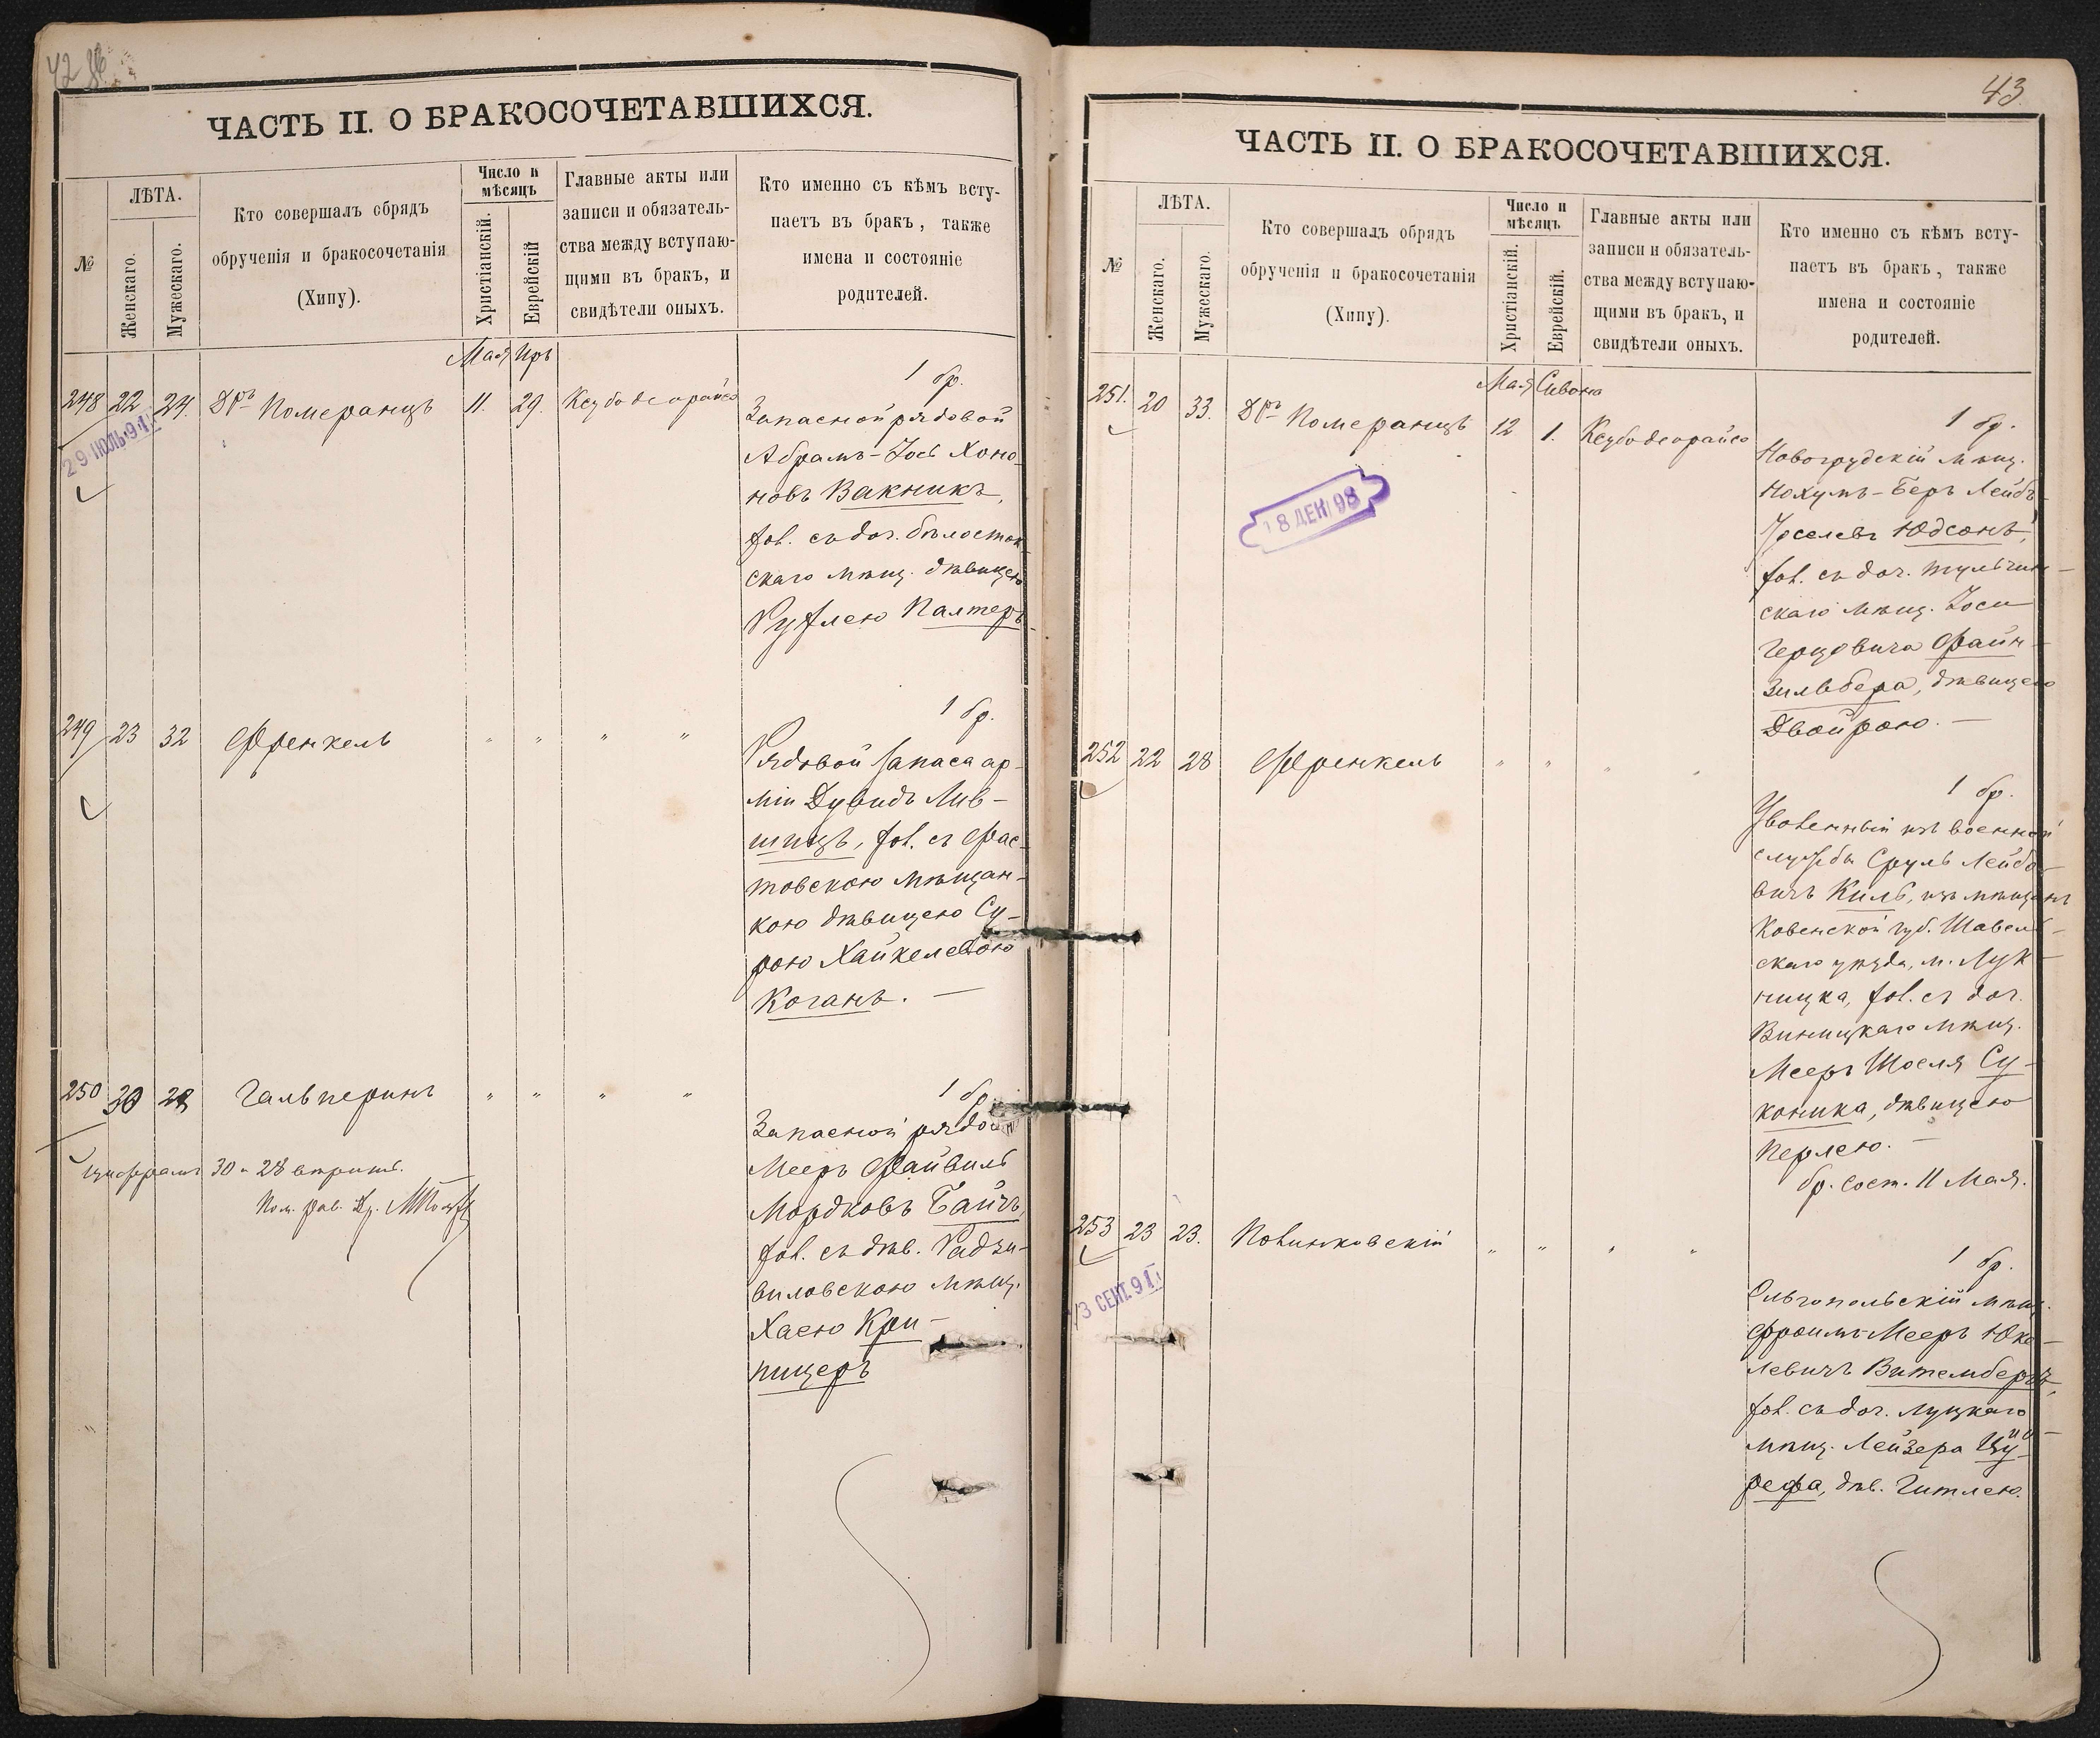 42
ЧАСТЬ II. О БРАКОСОЧЕТАВШИХСЯ.
№
ЛѢТА.
Женскаго.
Мужескаго.
Кто совершалъ обрядъ
обрученія и бракосочетанія
(Хипу).
Число и
мѣсяцъ
Христіанскій.
Еврейскій
Главные акты или
записи и обязатель-
ства между вступаю-
щими въ бракъ, и
свидѣтели оныхъ.
Кто именно съ кѣмъ всту-
паетъ въ бракъ, также
имена и состояніе
родителей.
Мая Иръ
248 22 24. Др. Померанцъ 11. 29. Ксубо деорайсо
29 ІЮЛЬ 91
1 бр.
Запасной рядовой
Абрамъ-Іось Хоно-
новъ Вакникъ,
хол. съ доч. бѣлосток-
скаго мѣщ. дѣвицею
Рухлею Палтеръ
249 23 32 Френкель " " " "
1 бр.
Рядовой запаса ар-
міи Дувидъ Лив-
шицъ, хол. съ Фас-
товскою мѣщан-
кою дѣвицею Су-
рою Хайкелевою
Коганъ. —
250 30 28 Гальперинъ " " " "
Цифрамъ 30 и 28 вѣрить.
Пом. рав. Др.
1 бр.
Запасной рядовой
Мееръ Файвиль
Мордковъ Байчъ,
хол. съ дѣв. Радзи-
виловскою мѣщ.
Хаею Кри-
пицеръ
43
ЧАСТЬ II. О БРАКОСОЧЕТАВШИХСЯ.
№
ЛѢТА.
Женскаго.
Мужескаго.
Кто совершалъ обрядъ
обрученія и бракосочетанія
(Хипу).
Число и
мѣсяцъ
Христіанскій.
Еврейскій.
Главные акты или
записи и обязатель-
ства между вступаю-
щими въ бракъ, и
свидѣтели оныхъ.
Кто именно съ кѣмъ всту-
паетъ въ бракъ, также
имена и состояніе
родителей.
Мая Сивона
251. 20 33. Др. Померанцъ 12 1. Ксубо деорайсо
18 ДЕК 98
1 бр.
Новогрудскій мѣщ.
Нохумъ-Беръ Лейбъ-
Іоселевъ Юдсонъ,
хол. съ доч. тульчин-
скаго мѣщ. Іоси
Герцовича Файн-
зильбера, дѣвицею
Двойрою. —
252 22 28 Френкель " " " "
1 бр.
Уволенный изъ военной
службы Сруль Лейбо-
вичъ Киль, изъ мѣщанъ
Ковенской губ. Шавель-
скаго уѣзда, м. Лук-
ницка, хол. съ доч.
Виницкаго мѣщ.
Мееръ Шоеля Су-
коника, дѣвицею
Перлею. —
бр. сост. 11 Мая.
253 23 23. Новинковскій " " " "
13 СЕНТ. 91
1 бр.
Ольгопольскій мѣщ.
Фроимъ-Мееръ Юко-
левичъ Витембергъ,
хол. съ доч. луцкаго
мѣщ. Лейзера Цу-
рефа, дѣв. Гитлею.